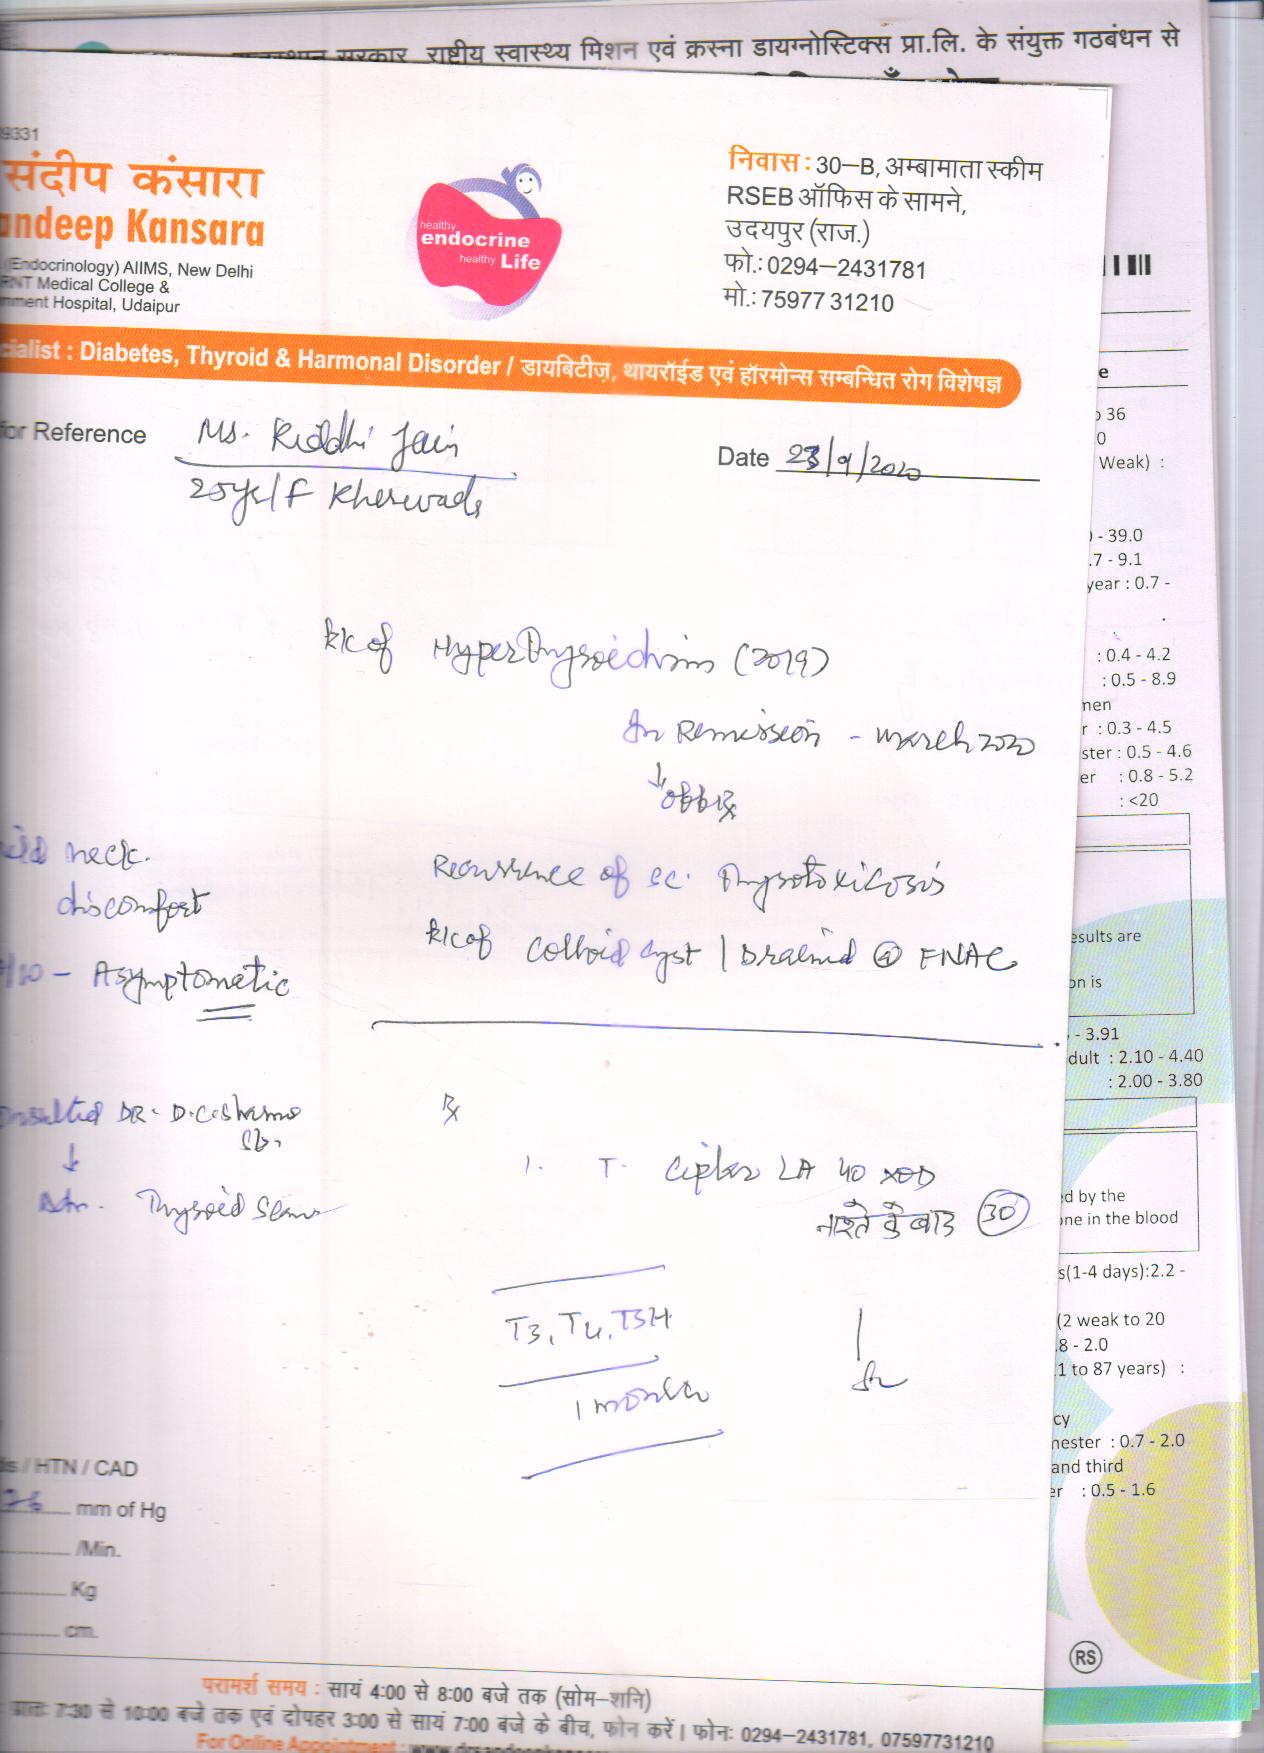 राजस्थान सरकार, राष्ट्रीय स्वास्थ्य मिशन एवं क्रस्ना डायग्नोस्टिक्स प्रा.लि. के संयुक्त गठबंधन से
9331
संदीप कंसारा
andeep Kansara
(Endocrinology) AIIMS, New Delhi
RNT Medical College &
nment Hospital, Udaipur
healthy
endocrine
healthy Life
निवास : 30–B, अम्बामाता स्कीम
RSEB ऑफिस के सामने,
उदयपुर (राज.)
फो.: 0294–2431781
मो.: 75977 31210
cialist : Diabetes, Thyroid & Harmonal Disorder / डायबिटीज़, थायरॉईड एवं हॉरमोन्स सम्बन्धित रोग विशेषज्ञ
for Reference Ms. Riddhi Jain
Date 23/9/2020
25yr/F Kherwada
k/c of Hyperthyroidism (2019)
In Remission - march 2020
↓
off Rx
Recurrence of sc. Thyrotoxicosis
k/c of Colloid cyst / Drained @ FNAC
mild neck
discomfort
/10 - Asymptomatic
onsulted DR. D.C. Sharma
Sb.
↓
Adv. Thyroid Scan
Rx
1. T. Ciplar LA 40 x OD
नाश्ते के बाद 30
T3, T4, TSH
1 month
is / HTN / CAD
76 mm of Hg
/Min.
Kg
cm.
परामर्श समय : सायं 4:00 से 8:00 बजे तक (सोम–शनि)
प्रातः 7:30 से 10:00 बजे तक एवं दोपहर 3:00 से सायं 7:00 बजे के बीच, फोन करें। फोनः 0294–2431781, 07597731210
For Online Appointment :
e
36
0
Weak) :
- 39.0
.7 - 9.1
year : 0.7 -
: 0.4 - 4.2
: 0.5 - 8.9
men
r : 0.3 - 4.5
ster : 0.5 - 4.6
er : 0.8 - 5.2
: <20
esults are
on is
- 3.91
dult : 2.10 - 4.40
: 2.00 - 3.80
d by the
one in the blood
s(1-4 days):2.2 -
(2 weak to 20
8 - 2.0
1 to 87 years) :
cy
nester : 0.7 - 2.0
and third
er : 0.5 - 1.6
RS